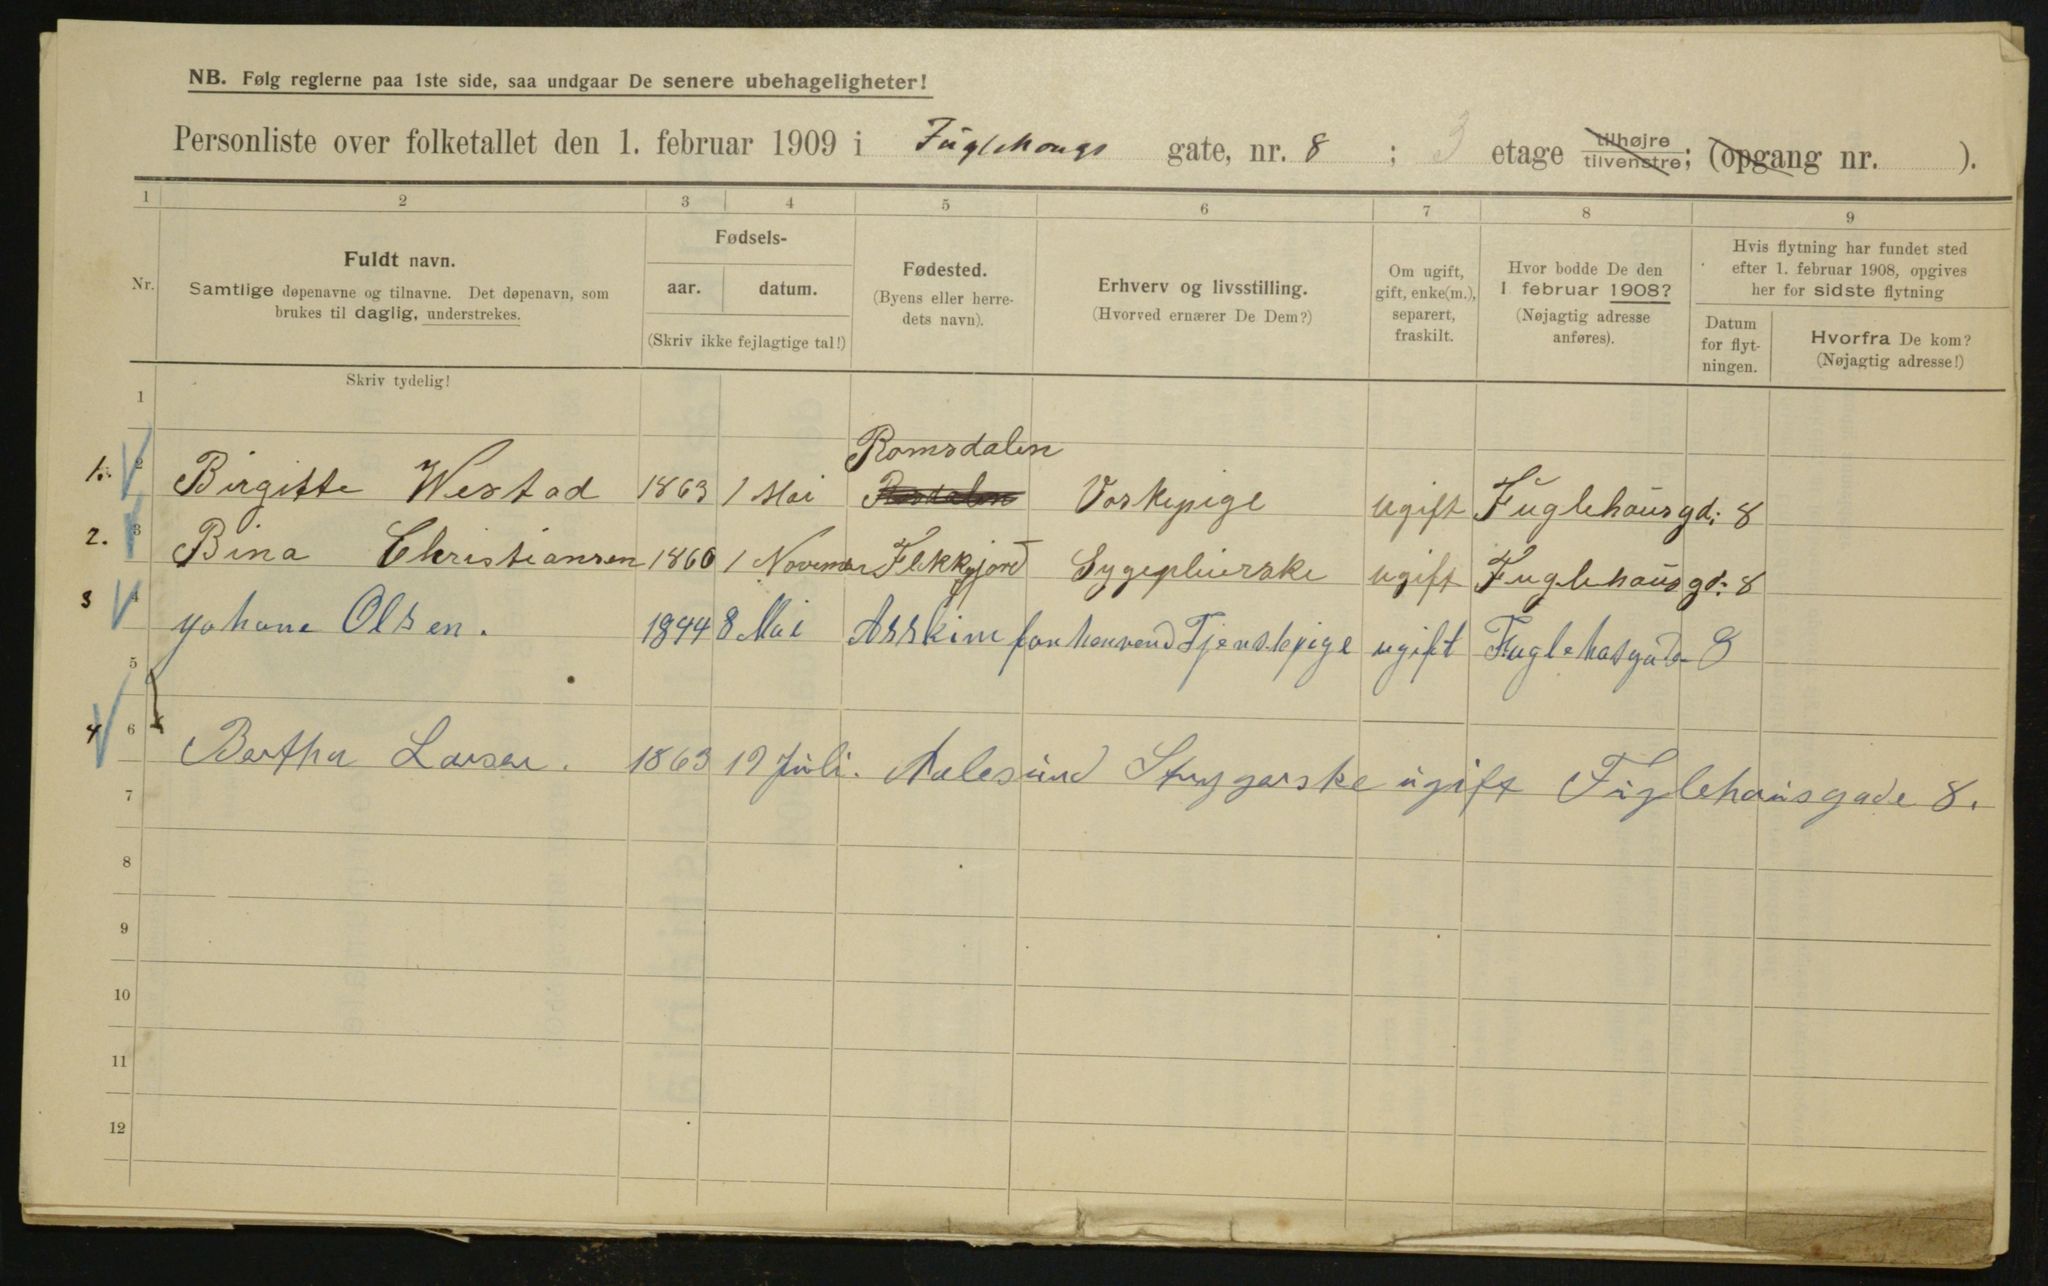 NB. Følg reglerne paa 1ste side, saa undgaar De senere ubehageligheter!
Personliste over folketallet den 1. februar 1909 i Fuglehougs gate, nr. 8 ; 3 etage tilhøjre tilvenstre; (opgang nr. ).
1 2 3 4 5 6 7 8 9
Nr.
Fuldt navn.
Samtlige døpenavne og tilnavne. Det døpenavn, som
brukes til daglig, understrekes.
Skriv tydelig!
Fødsels-
aar. datum.
(Skriv ikke fejlagtige tal!)
Fødested.
(Byens eller herre-
dets navn).
Erhverv og livsstilling.
(Hvorved ernærer De Dem?)
Om ugift,
gift, enke(m.),
separert,
fraskilt.
Hvor bodde De den
1 februar 1908?
(Nøjagtig adresse
anføres).
Hvis flytning har fundet sted
efter 1. februar 1908, opgives
her for sidste flytning
Datum
for flyt-
ningen.
Hvorfra De kom?
(Nøjagtig adresse!)
1
Romsdalen
1. 2 Birgitte Westad 1863 1 Mai Vaskepige ugift Fuglehausgd: 8
2. 3 Bina Christiansen 1860 1 November Flekkefjord Sygepleierske ugift Fuglehausgd: 8
3 4 Johane Olsen. 1844 8 Mai Asskim Tjenstepige ugift Fuglehasgade 8
5
4 6 Bertha Larsen. 1863 19 Juli. Aalesund Strygerske ugift Fuglehausgade 8.
7
8
9
10
11
12